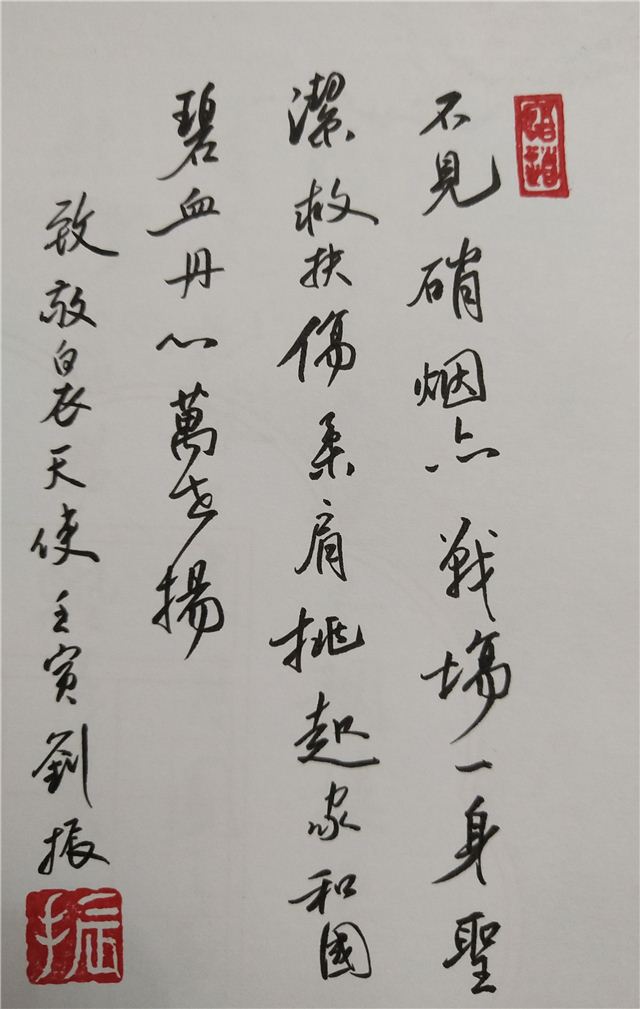 不見硝烟亦戦塲一身聖
潔救扶傷柔肩挑起家和國
碧血丹心萬世揚
致敬白衣天使壬寅劉振
振